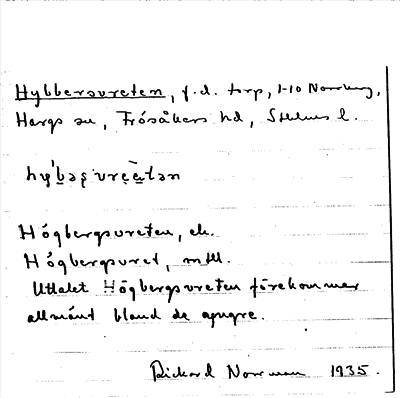 Hybbersvreten, f.d. torp, 1-10 Norrberg,
Hargs sn, Frösåkers hd, Sthlms l.
hy̆b̲əṣvrèt̲ən
Högbergsvreten, ek.
Högbergsvret, mtl.
Uttalet Högbergsvreten förekommer
allmänt bland de yngre.
Rickard Norrman 1935.